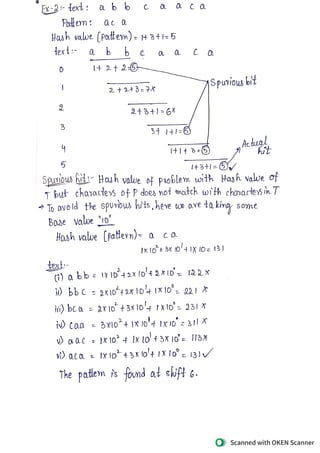 Ex-2:- text: a b b c a a c a
Pattern: a c a
Hash value (pattern) = 1+3+1=5
text:- a b b c a a c a
0 1+2+2=5
Spurious bit
1 2+2+3=7X
2 2+3+1=6X
3 3+1+1=5
4 1+1+3=5
Actual hit
5 1+3+1=5✓
Spurious hit:- Hash value of problem with Hash value of
T but characters of P does not match with characters in T
→ To avoid the spurious hits, here we are taking some
Base value "10"
Hash value (pattern)= a c a
1X10²+3X10¹+1X10=131
text:-
(i) abb = 1X10²+2X10¹+2X10⁰= 122 X
ii) bbc = 2X10²+2X10¹+1X10⁰= 221 X
iii) bca = 2X10²+3X10¹+1X10⁰= 231 X
iv) caa = 3X10²+1X10¹+1X10⁰= 311 X
v) aac = 1X10²+1X10¹+3X10⁰= 113X
vi) aca = 1X10²+3X10¹+1X10⁰= 131✓
The pattern is found at shift 6.
Scanned with OKEN Scanner